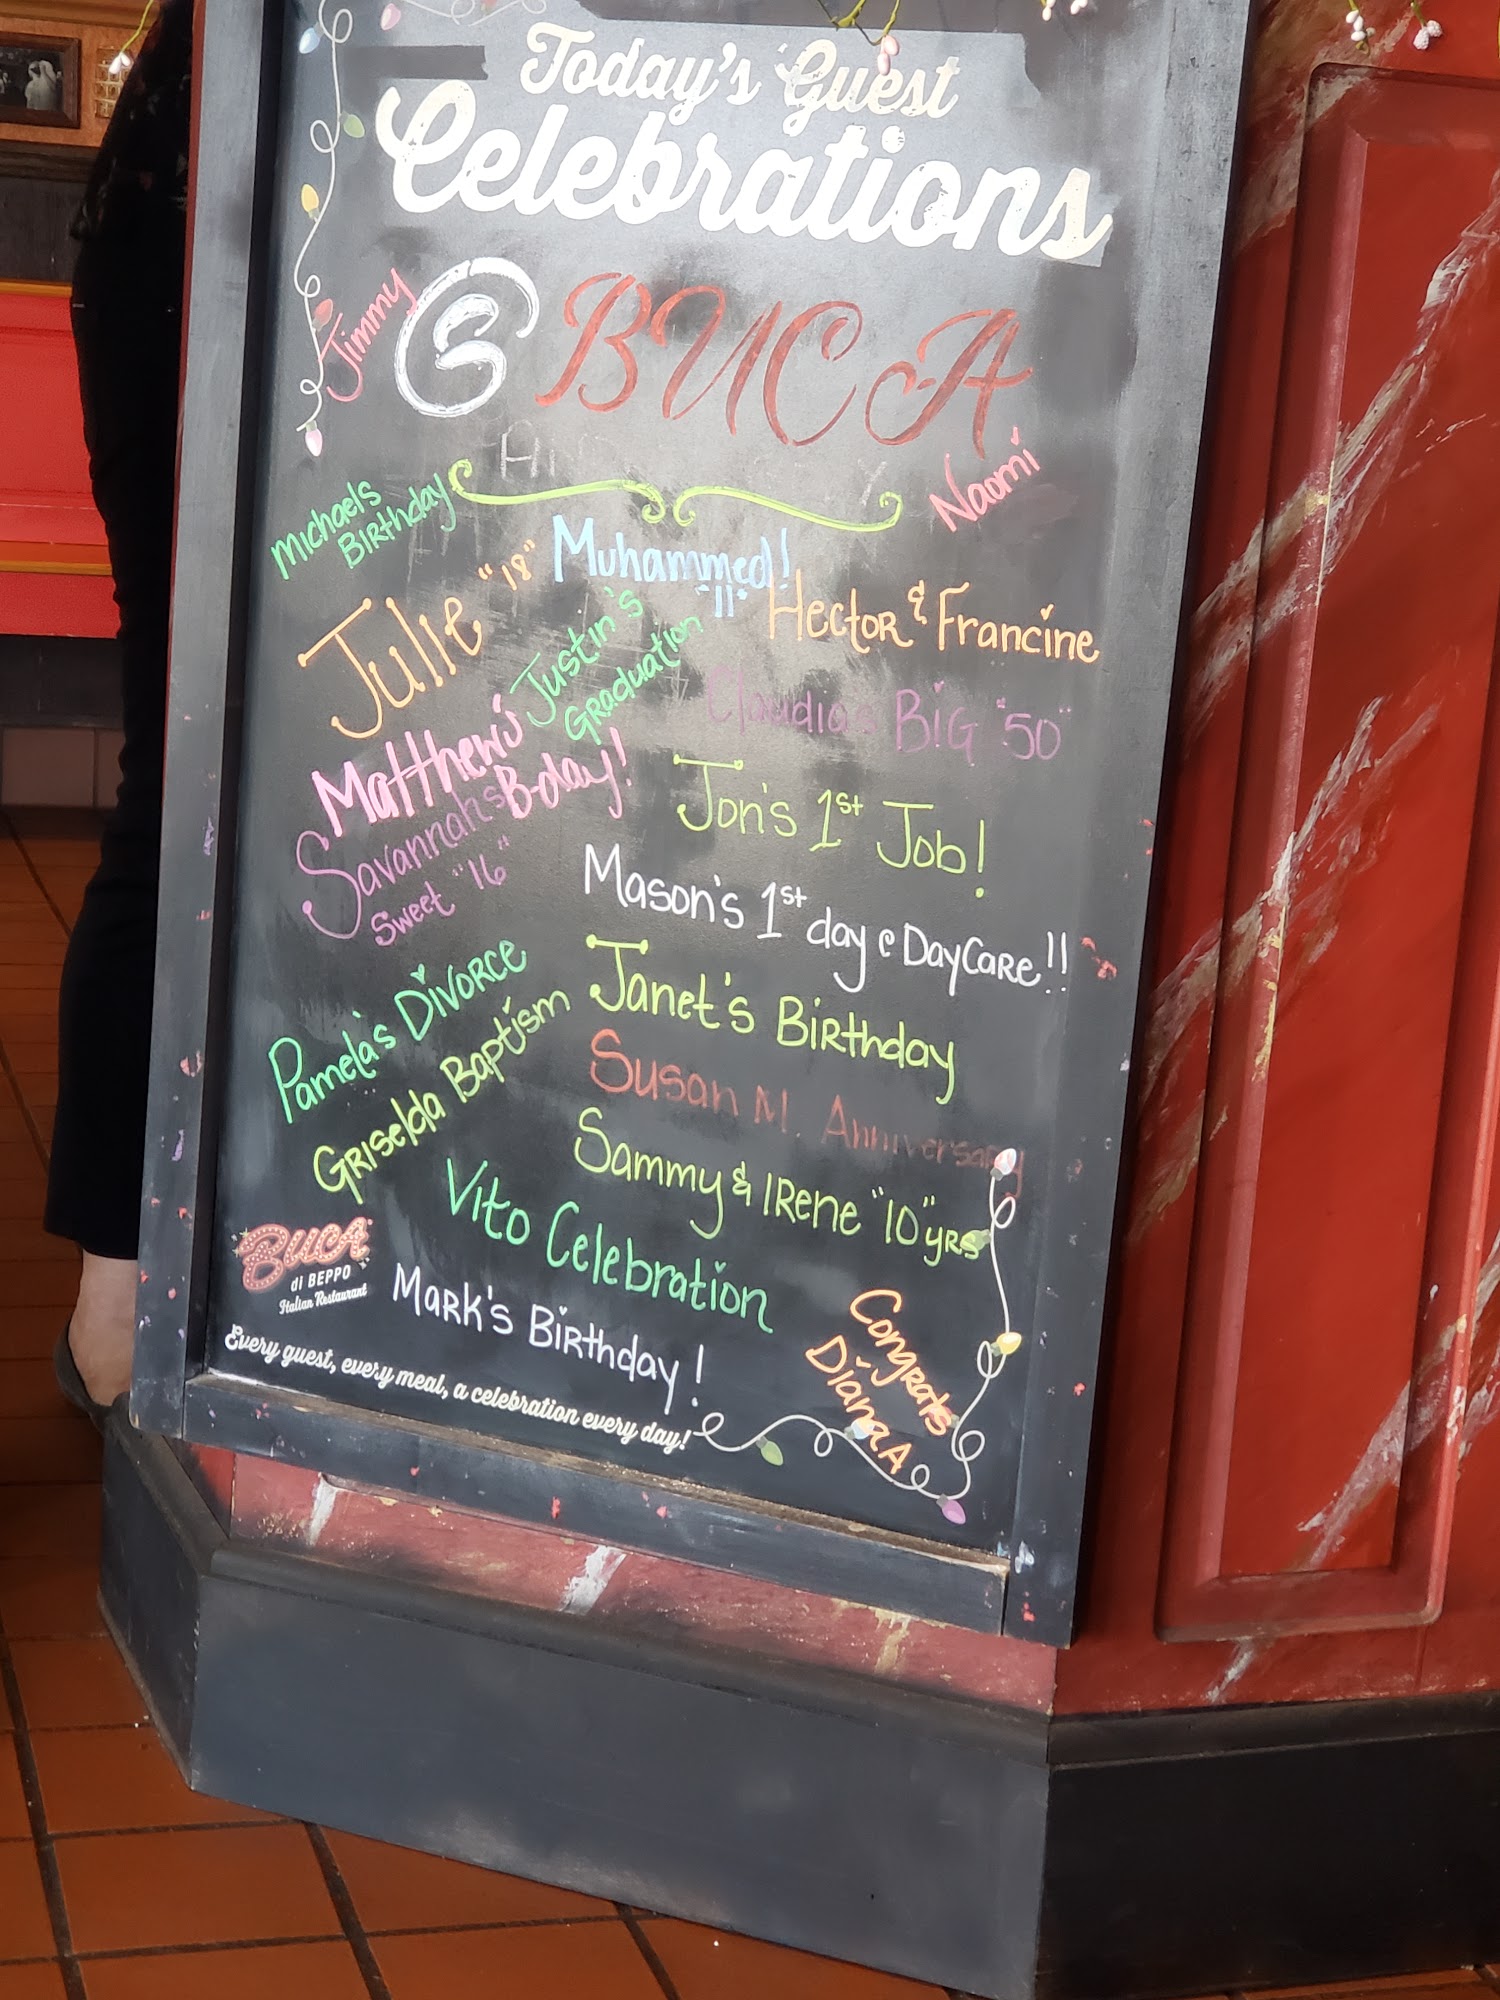 Today's Guest
Celebrations
Jimmy
@ BUCA
Naomi
Michaels
Birthday
Muhammed!
"11"
Julie "18"
Hector & Francine
Justin's
Graduation
Claudia's BiG "50"
Matthew's
B-day!
Jon's 1st Job!
Savannah's
Sweet "16"
Mason's 1st day @ DayCare!!
Pamela's Divorce
Janet's Birthday
Griselda Baptism
Susan M. Anniversary
Sammy & Irene "10" yrs
Vito Celebration
BUCA
di BEPPO
Italian Restaurant
Mark's Birthday!
Congrats
DianRA
Every guest, every meal, a celebration every day!